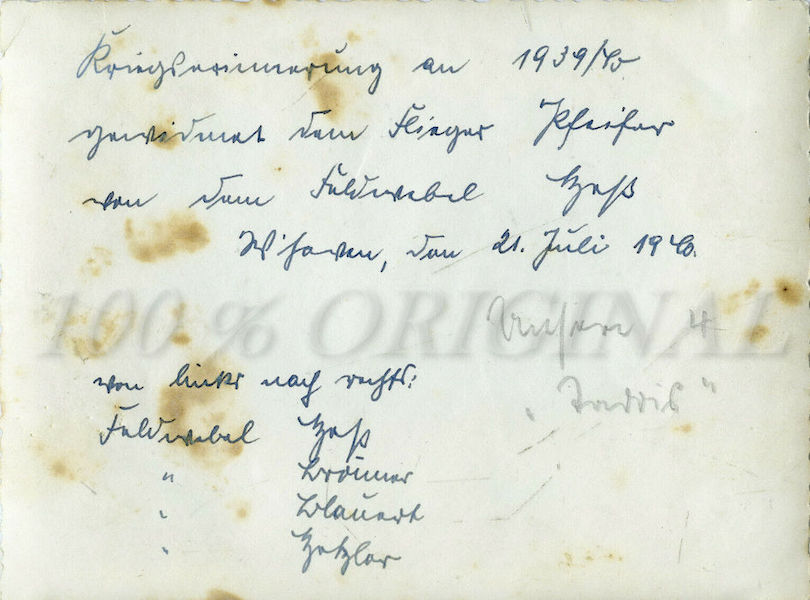 Kriegserinnerung an 1939/40
gewidmet dem Flieger Pfeifer
von dem Feldwebel Heß
W'haven, den 21. Juli 1940.
100 % ORIGINAL
Unsere 4
von links nach rechts:
„ Taddis "
Feldwebel Heß
" Brönner
" Blauert
" Hetzler